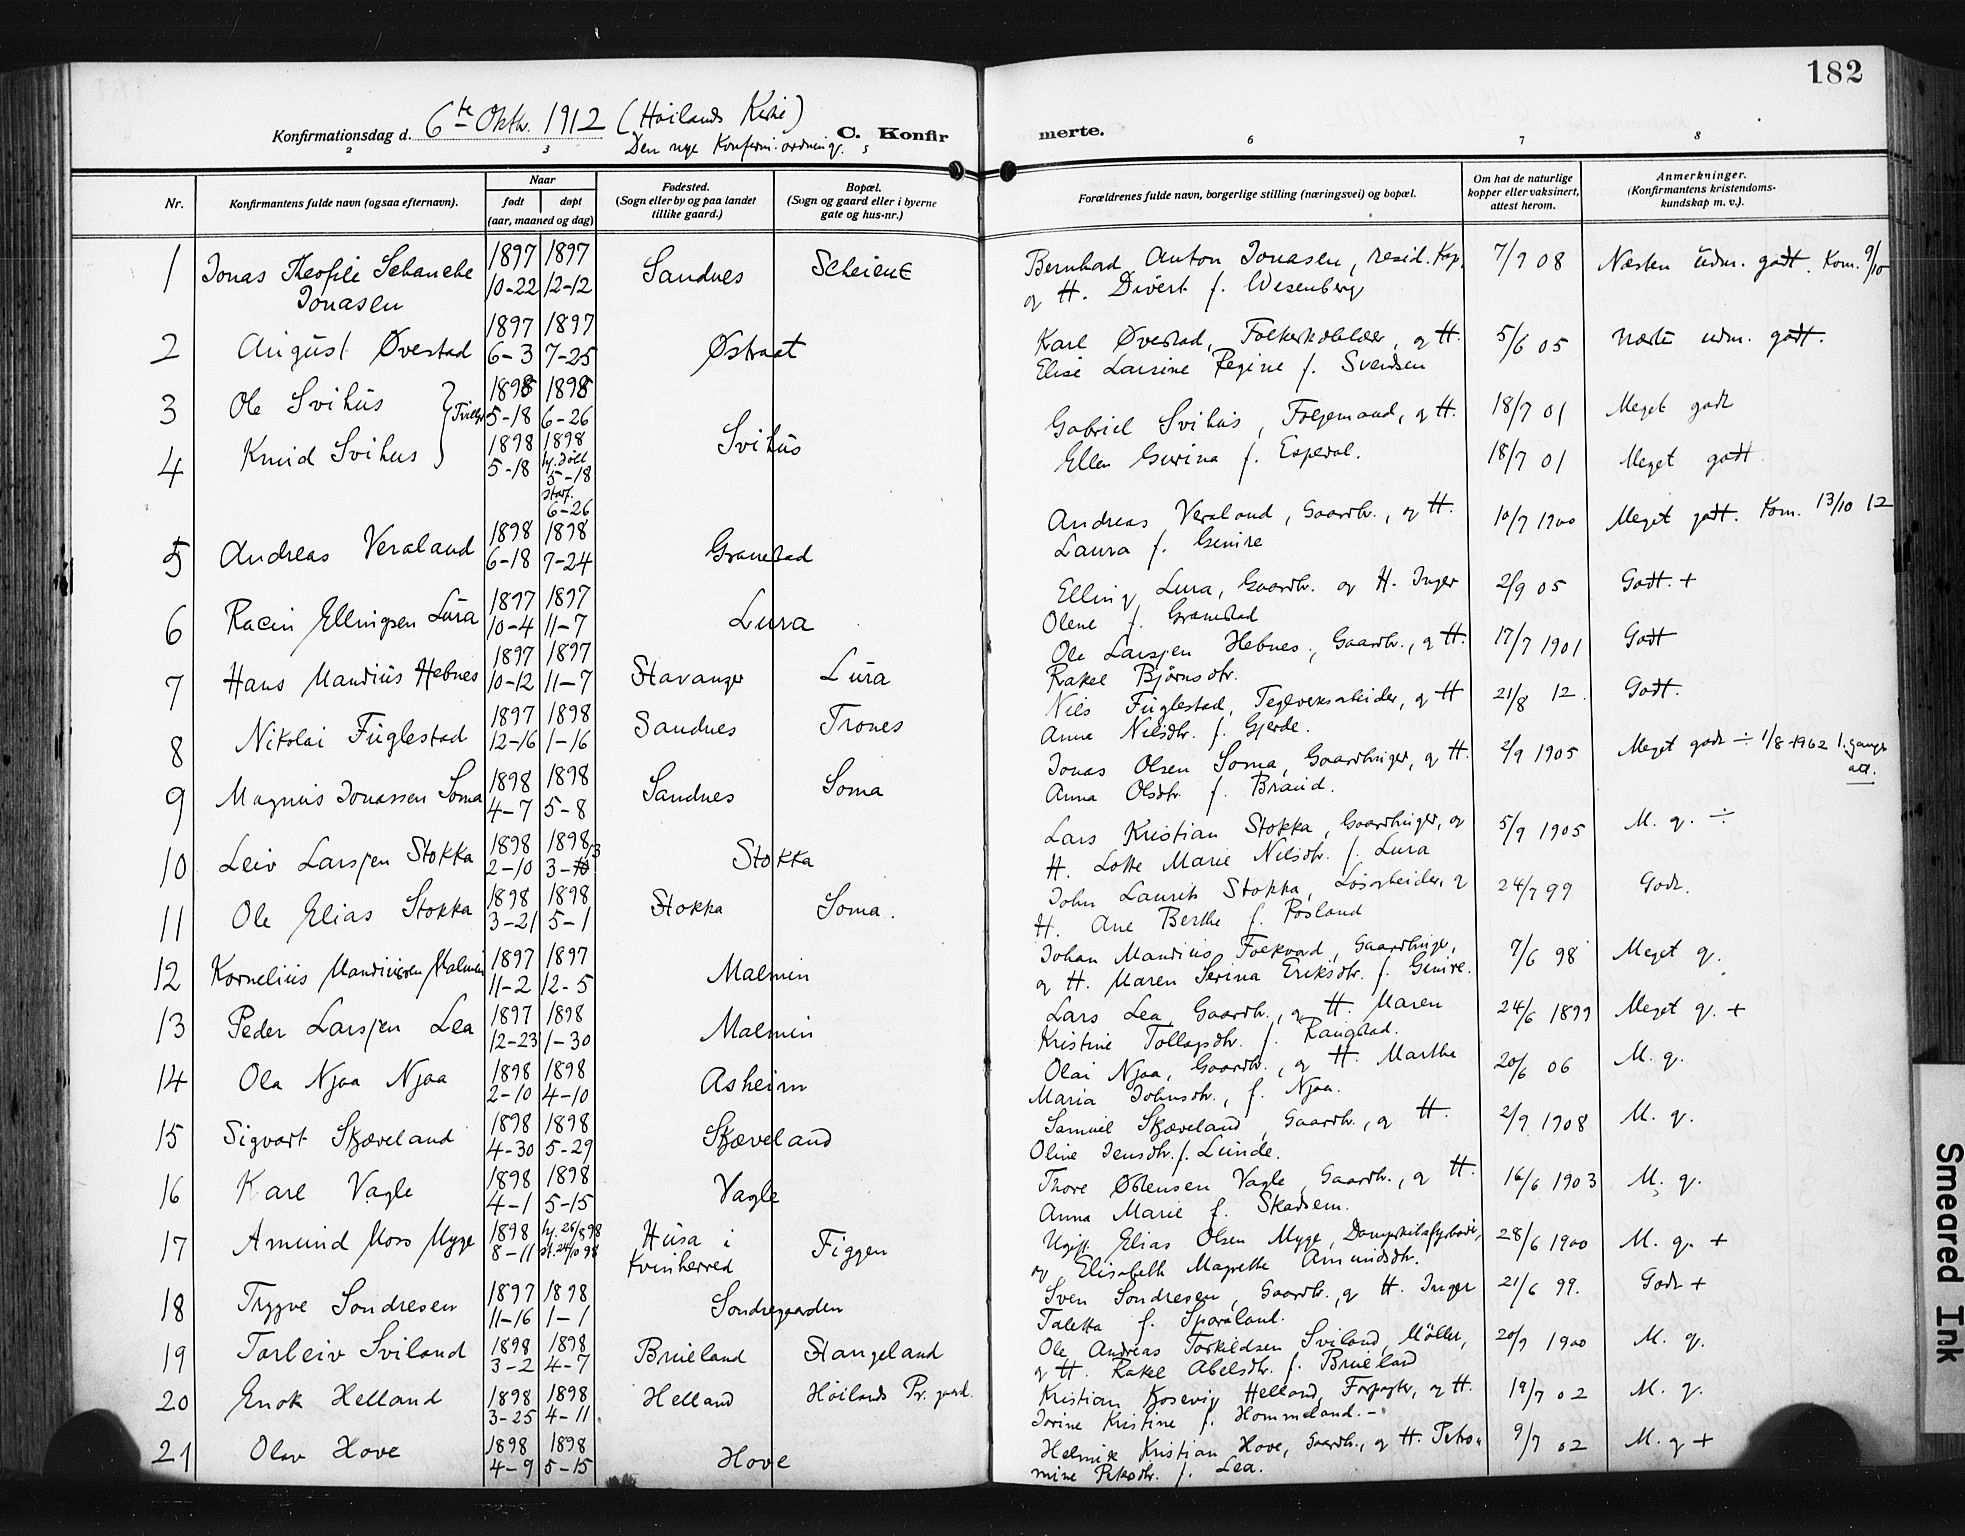 182
Konfirmationsdag d. 6te Oktr. 1912 (Høilands Kirke)
Den nye Konfirm.ordning.
C. Konfirmerte.
2 3 5 6 7 8
Nr.
Konfirmantens fulde navn (ogsaa efternavn).
Naar
født
døpt
(aar, maaned og dag)
Fødested.
(Sogn eller by og paa landet
tillike gaard.)
Bopæl.
(Sogn og gaard eller i byerne
gate og hus-nr.)
Forældrenes fulde navn, borgerlige stilling (næringsvei) og bopæl.
Om hat de naturlige
kopper eller vaksinert,
attest herom.
Anmerkninger.
(Konfirmantens kristendoms-
kundskap m. v.).
1 Jonas Theofile Schanche 1897 1897 Sandnes Scheiene Bernhard Anton Jonasen, resid. Kap. 7/9 08 Næsten udm. godt. Kom. 9/10
Jonasen 10-22 12-12 og H. Divert f. Wesenberg
2 August Øvestad 1897 1897 Østraat Karl Øvestad, og H. 5/6 05 Næsten udm. godt.
6-3 7-25 Elise Laurine Regine f. Svendsen
3 Ole Svihus 1898 1898 Svihus Gabriel Svihus, og H. 18/7 01 Meget godt
5-18 6-26
4 Knud Svihus 1898 1898 Ellen Gurina f. Espedal. 18/7 01 Meget godt
5-18 hj. døbt 5-18 stadf. 6-26
5 Andreas Veraland 1898 1898 Granstad Andreas Veraland, Gaardbr., og H. 10/7 1900 Meget godt. Kom. 13/10 12
6-18 7-24 Laura f. Gimre
6 Racin Ellingsen Lura 1897 1897 Lura Elling Lura, Gaardbr. og H. Inger 2/9 05 Godt. +
10-4 11-7 Olene f. Granstad
7 Hans Mandius Hebnes 1897 1897 Stavanger Lura Ole Larsen Hebnes, Gaardbr., og H. 17/7 1901 Godt
10-12 11-7 Rakel Bjørnsdtr.
8 Nikolai Fuglestad 1897 1898 Sandnes Trones Nils Fuglestad, Teglverksarbeider, og H. 21/8 12. Godt.
12-16 1-16 Anne Nilsdtr. f. Gjerde.
9 Magnus Jonassen Soma 1898 1898 Sandnes Soma Jonas Olsen Soma, Gaardbruger, og H. 2/9 1905 Meget godt ÷ 1/8 1962 1. gangs att.
4-7 5-8 Anna Olsdtr. f. Braud.
10 Leiv Larsen Stokka 1898 1898 Stokka Lars Kristian Stokka, Gaardbruger, og 5/9 1905 M. g. ÷
2-10 3-13 H. Lotte Marie Nilsdtr. f. Lura
11 Ole Elias Stokka 1898 1898 Stokka Soma. John Laurits Stokka, Løsarbeider, og 24/7 99 Godt.
3-21 5-1 H. Ane Berthe f. Røsland
12 Kornelius Mandiussen Malmin 1897 1897 Malmin Johan Mandius Folkvord, Gaardbruger, 7/6 98 Meget g.
11-2 12-5 og H. Maren Serina Eriksdtr. f. Gimre.
13 Peder Larsen Lea 1897 1898 Malmin Lars Lea, Gaardbr., og H. Maren 24/6 1899 Meget g. +
12-23 1-30 Kristine Tollagsdtr. f. Raugstad.
14 Ola Njaa Njaa 1898 1898 Asheim Olai Njaa, Gaardbr., og H. Marthe 20/6 06 M. g.
2-10 4-10 Maria Johnsdtr., f. Njaa.
15 Sigvart Skjæveland 1898 1898 Skjæveland Samuel Skjæveland, Gaardbr., og H. 2/9 1908 M. g.
4-30 5-29 Oline Jensdtr. f. Lunde.
16 Karl Vagle 1898 1898 Vagle Thore Østensen Vagle, Gaardbr., og H. 16/6 1903 M. g.
4-1 5-15 Anna Marie f. Skadsem.
17 Amund Moss Myge 1898 hj. 26/8 98 Husa i Figgen Ugift Elias Olsen Myge, 28/6 1900 M. g. +
8-11 st. 24/10 98 Kvinherred og Elisabeth Magrethe Amundsdtr.
18 Trygve Sondresen 1897 1898 Sondregaarden Sven Sondresen, Gaardbr., og H. Inger 21/6 99. Godt +
11-16 1-1 Taletta f. Sporaland.
19 Torleiv Sviland 1898 1898 Brueland Stangeland Ole Andreas Torkildsen Sviland, Møller, 20/9 1900 M. g.
3-2 4-7 og H. Rakel Abelsdtr. f. Brueland
20 Enok Helland 1898 1898 Helland Høilands Pr. gaard. Kristian Kosevig Helland, Forpagter, og H. 19/7 02 M. g.
3-25 4-11 Jorine Kristine f. Hommeland. -
21 Olav Hove 1898 1898 Hove Helmik Kristian Hove, Gaardbr., og H. Petro- 9/7 02 M. g +
4-9 5-15 mine Petersdtr. f. Lea.
Smeared Ink